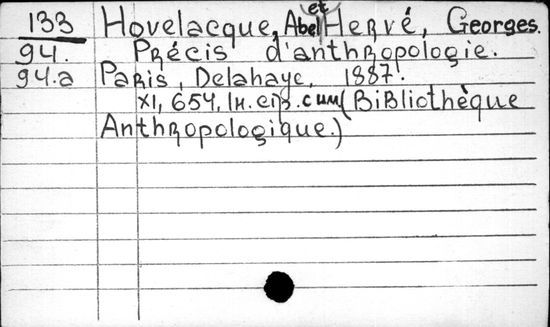 133 Hovelacque, Abel et Hervé, Georges.
94. Précis d'anthropologie.
94.a Paris, Delahaye, 1887.
XI, 654, cum (Bibliothèque
Anthropologique.)